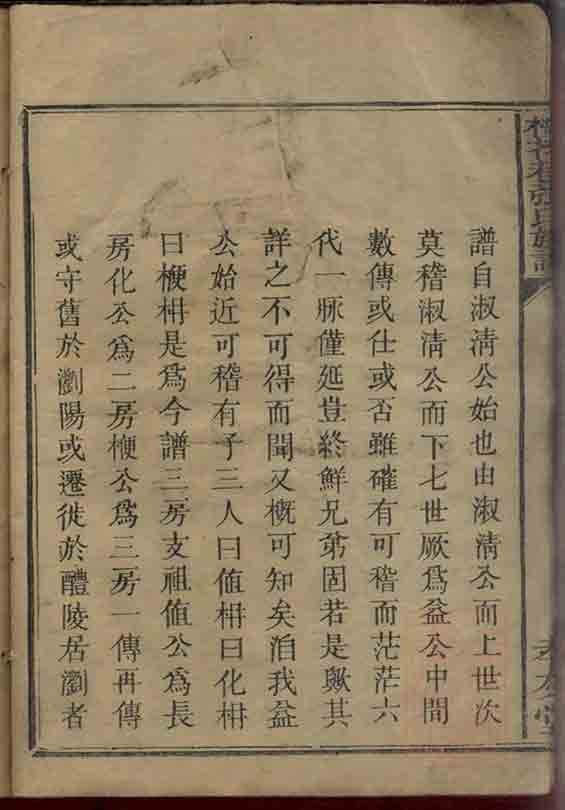 張氏族譜
孝友堂
譜自淑清公始也由淑清公而上世次
莫稽淑清公而下七世厥爲益公中間
數傳或仕或否雖確有可稽而茫茫六
代一脉僅延豈終鮮兄弟固若是歟其
詳之不可得而聞又概可知矣洎我益
公始近可稽有子三人曰值枏曰化枏
曰楩枏是爲今譜三房支祖值公爲長
房化公爲二房楩公爲三房一傳再傳
或守舊於瀏陽或遷徙於醴陵居瀏者